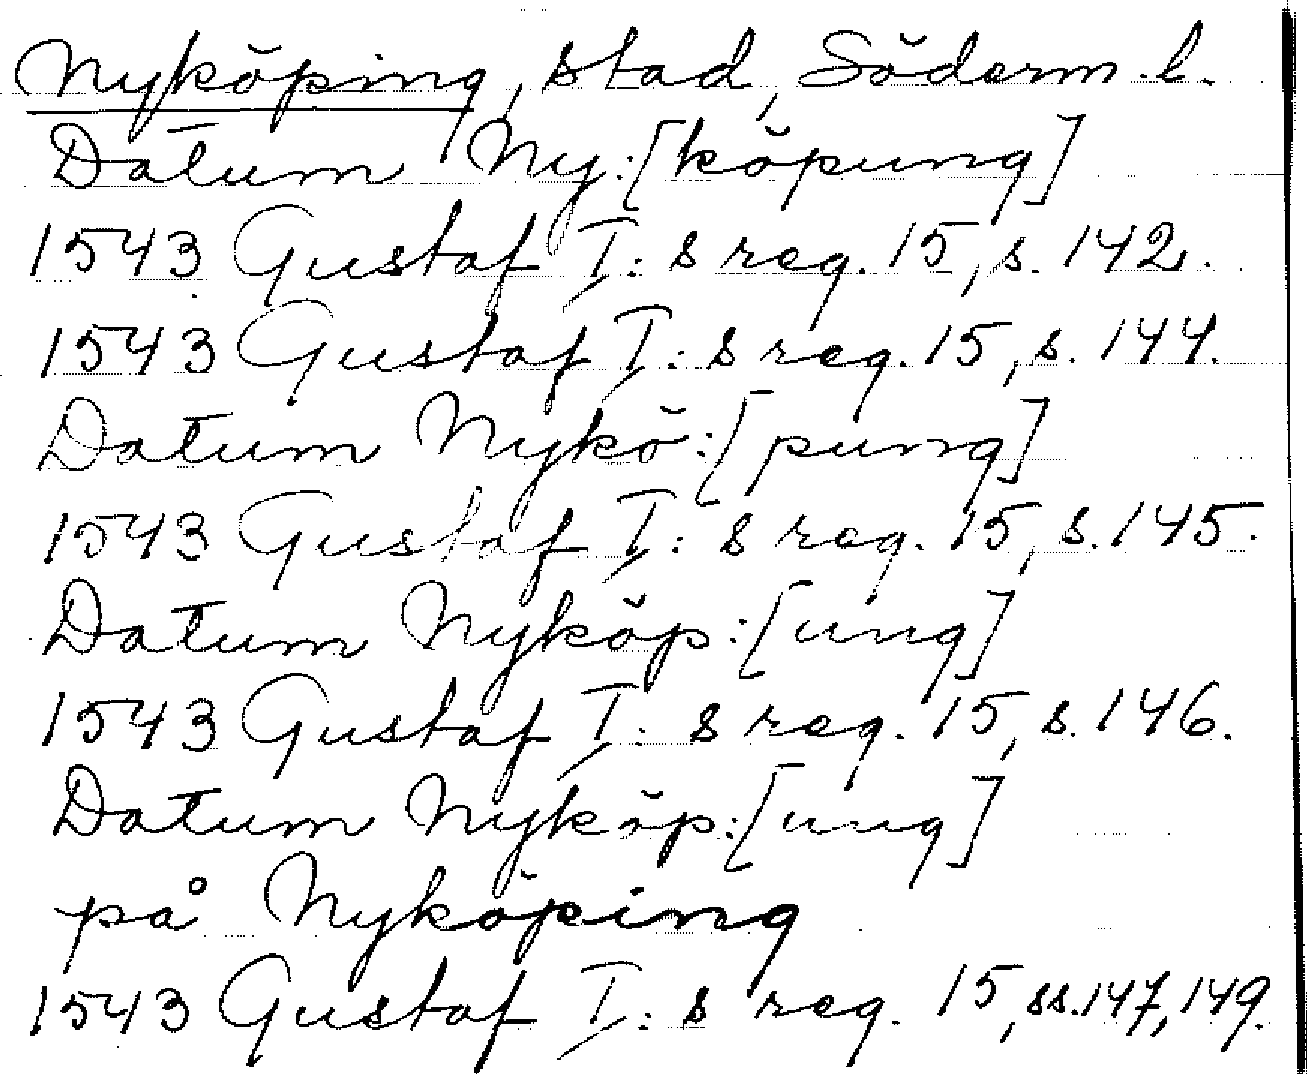 Nyköping, stad, Söderm. l.
Datum Ny:[köpung]
1543 Gustaf I:s reg. 15, s. 142.
1543 Gustaf I:s reg. 15, s. 144.
Datum Nykö:[pung]
1543 Gustaf I:s reg. 15, s. 145.
Datum Nyköp:[ung]
1543 Gustaf I:s reg. 15, s. 146.
Datum Nyköp:[ung]
på Nyköping
1543 Gustaf I:s reg. 15, ss. 147, 149.